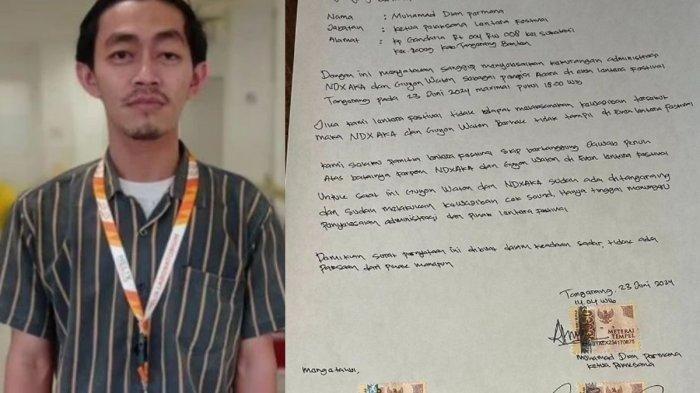 Nama : Muhamad Dian Permana
Jabatan : Ketua pelaksana Lentera Festival
Alamat : Kp Gandaria Rt 004 Rw 008 kel sukabakti
Kec. Kab Tangerang Banten
Dengan ini menyatakan sanggup menyelesaikan kekurangan administrasi
NDXAKA dan Guyon Waton sebagai pengisi Acara di even lentera Festival
Tangerang pada 23 Juni 2024 maximal pukul 18:00 Wib
Jika kami lentera festival tidak dapat melaksanakan kewajiban tersebut
maka NDXAKA dan Guyon Waton Berhak tidak tampil di Even lentera festival
Kami selaku panitia lentera festival siap bertanggung Jawab penuh
Atas batalnya perform NDXAKA dan Guyon Waton di Even lentera festival
Untuk saat ini Guyon Waton dan NDXAKA sudah ada ditangerang
dan sudah melakukan kewajiban cek sound, Hanya tinggal menunggu
penyelesaian administrasi dari pihak lentera festival
Demikian surat pernyataan ini dibuat dalam keadaan sadar, tidak ada
paksaan dari pihak manapun
Tangerang, 23 Juni 2024
14.04 Wib
METERAI
TEMPEL
Muhamad Dian Permana
ketua Pelaksana
Mengetahui,